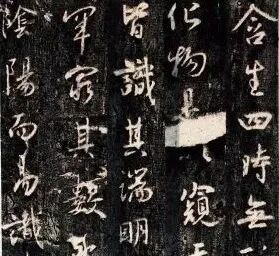 含生四時無
化物是以窺天
皆識其端明
罕窮其數
陰陽而易識